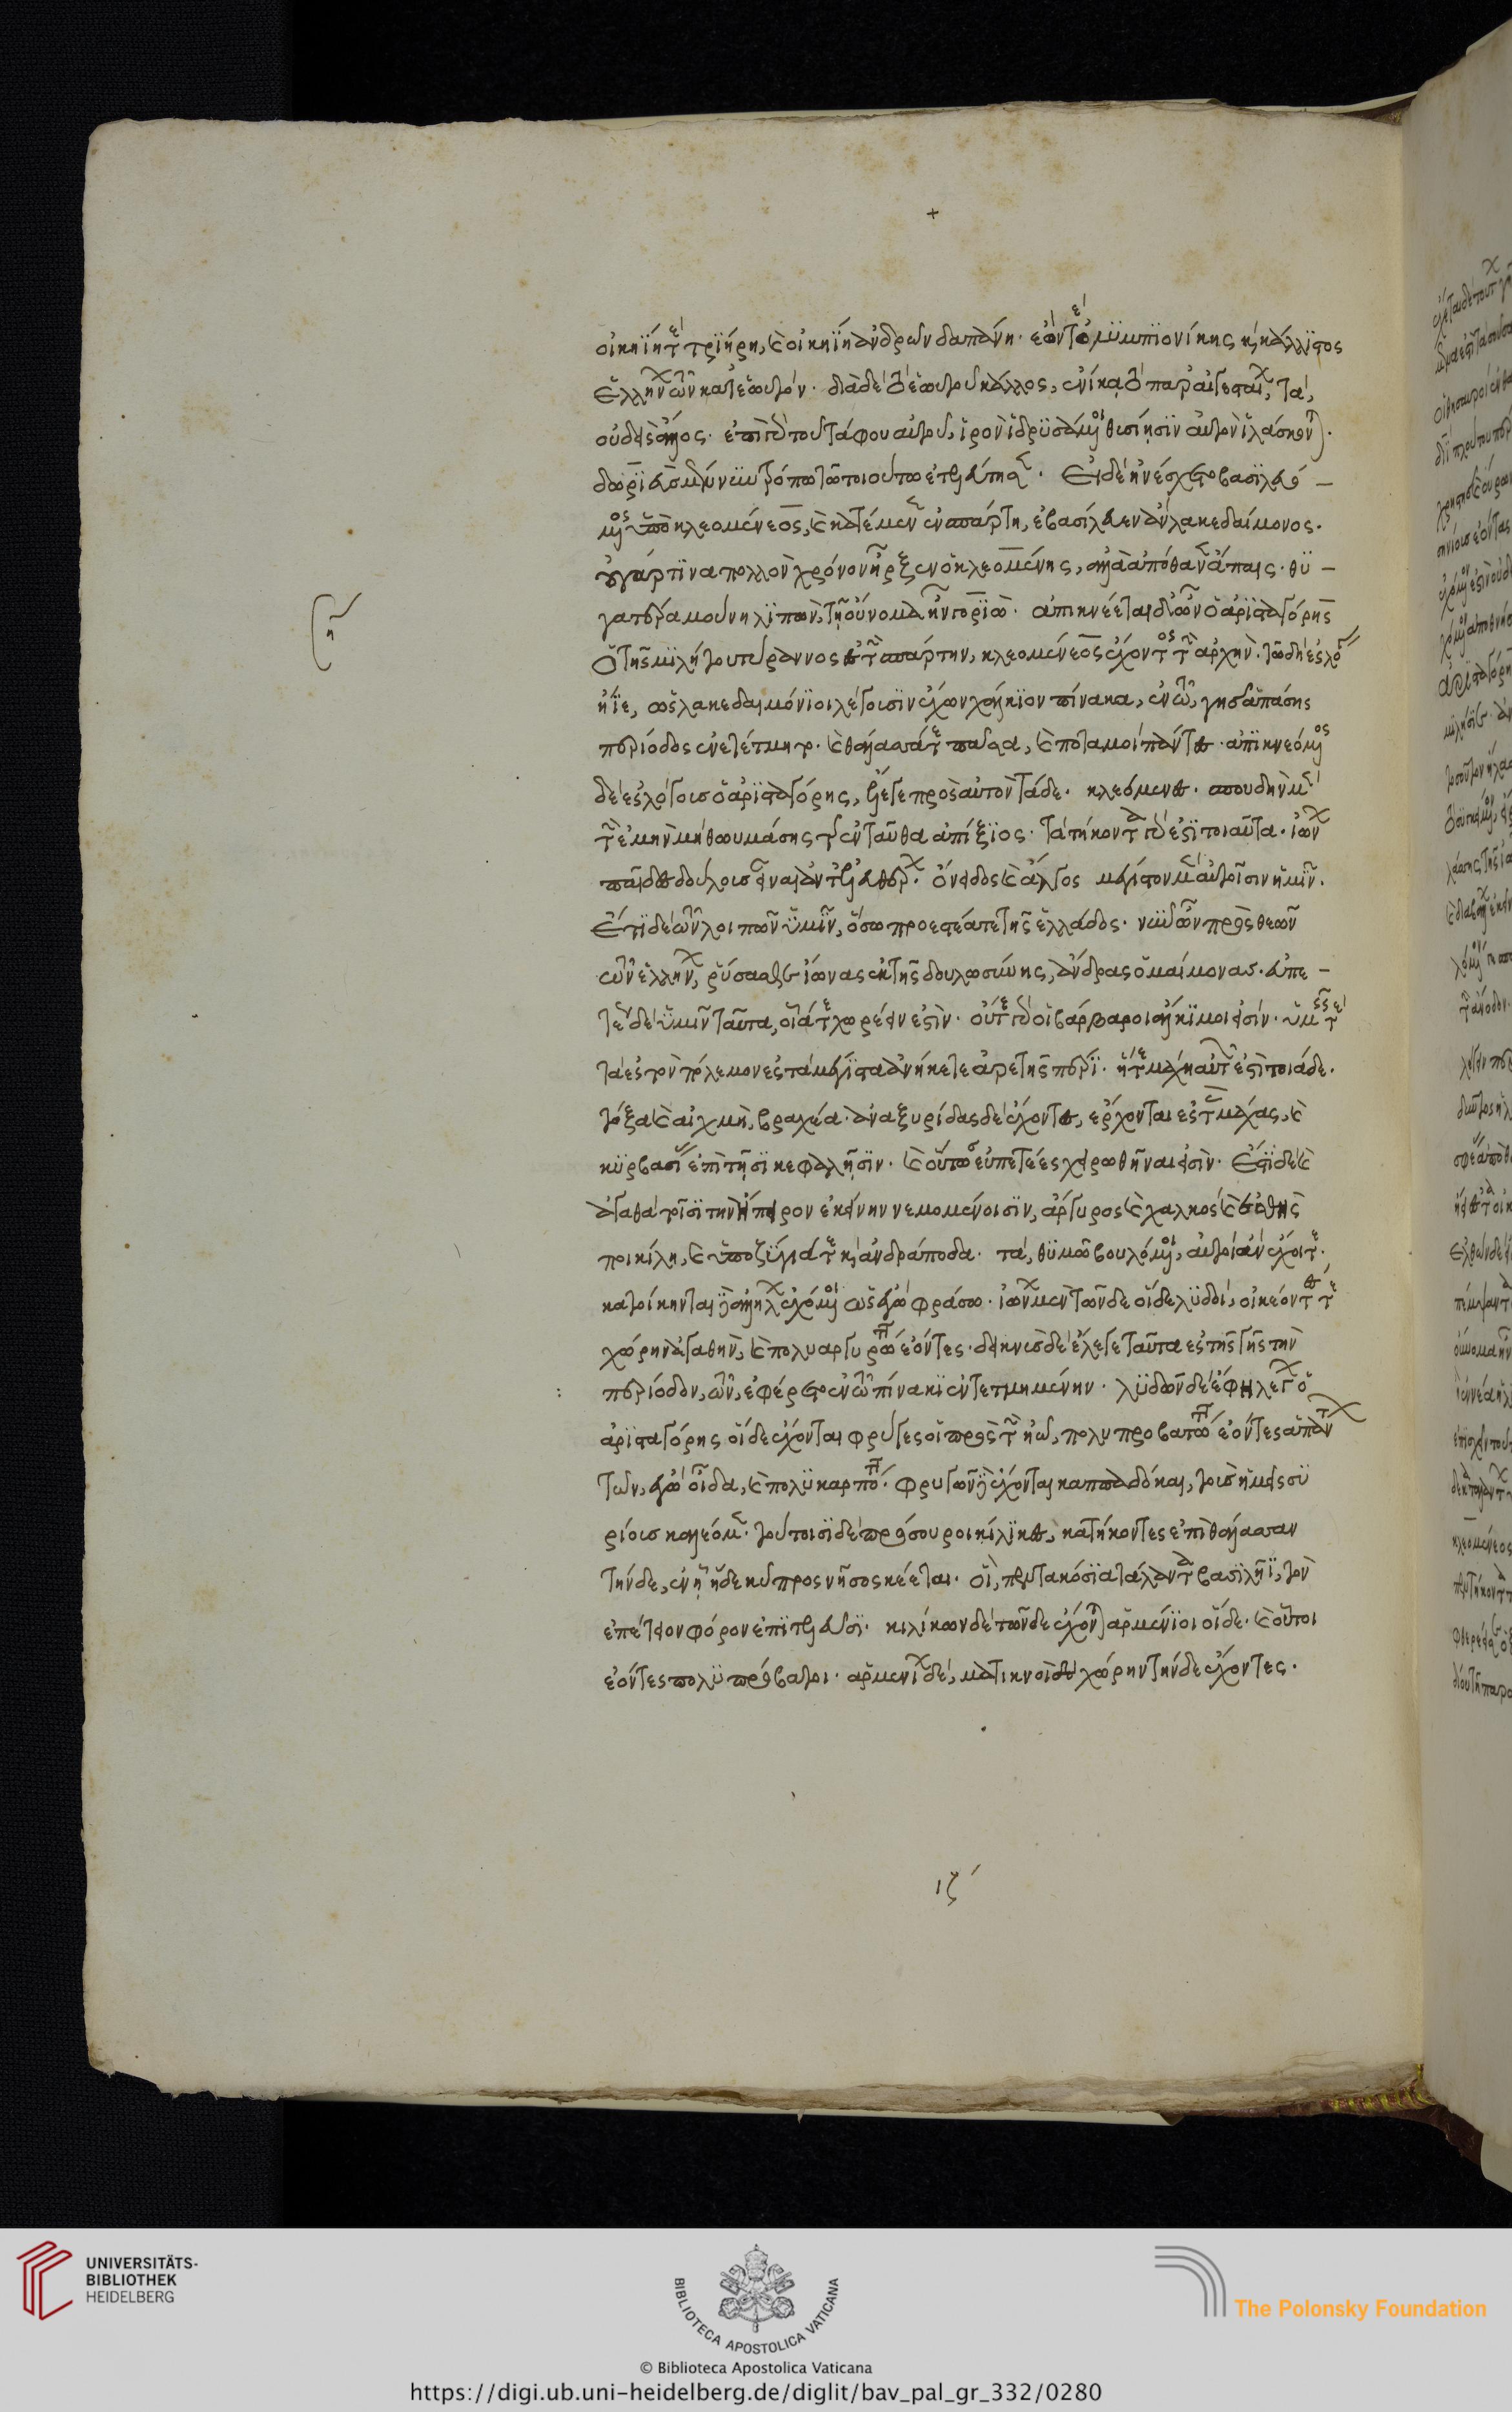 οἰκηΐη τε τριήρη, καὶ οἰκηΐη ἀνδρῶν δαπάνη· ἐών τε ὀλυμπιονίκης κ κάλλιστος
Ἑλλήνων τῶν κατ' ἑωυτόν· διὰ δὲ τὸ ἑωυτοῦ κάλλος, ἐνίκατο παρ' αἰγεσταίων, τὰ,
οὐδεὶς ἄλλος· ἐπὶ γὰρ τοῦ τάφου αὐτοῦ, ἱρὸν ἱδρυσάμενοι θυσίησιν αὐτὸν ἱλάσκονται·
δωριεὺς μέν νυν τρόπω τῶ τοιούτω ἐτελεύτησε· Εἰ δὲ ἠνέσχετο βασιλευό –
μενος ὑπὸ κλεομένεος, καὶ κατέμενεν ἐν σπάρτη, ἐβασίλευεν ἂν λακεδαίμονος·
οὐ γάρ τινα πολλὸν χρόνον ἦρξεν ὁ κλεομένης, ἀλλὰ ἀπόθανεν ἄπαις· θυ –
γατέρα μούνη λιπὼν, τῆ οὔνομα ἦν γοργώ· ἀπικνέεται δ' ὦν ὁ ἀρισταγόρης
ὁ τῆς μιλήτου τύραννος ἐς τὴν σπάρτην, κλεομένεος ἔχοντος τὴν ἀρχήν· τῶ δὴ ἐς λόγους
ἤϊε, ὡς λακεδαιμόνιοι λέγουσιν ἔχων χάλκιον πίνακα, ἐν τῶ, γῆς ἁπάσης
περίοδος ἐνετέτμητο· καὶ θάλασσά τε πᾶσα, καὶ ποταμοὶ πάντες· ἀπικνεόμενος
δὲ ἐς λόγους ὁ ἀρισταγόρης, ἔλεγε πρὸς αὐτὸν τάδε· κλεόμενες· σπουδὴν μὲν
τὴν ἐμὴν μὴ θωυμάσης τῆς ἐνταῦθα ἀπίξιος· τὰ κατήκοντα γάρ ἐστι τοιαῦτα· ἰώνων
παῖδας δούλους εἶναι ἀντ' ἐλευθέρων· ὄνειδος καὶ ἄλγος μέγιστον μὲν αὐτοῖσιν ἡμῖν·
Ἔτι δὲ τῶν λοιπῶν ὑμῖν, ὅσω προεστέατε τῆς ἑλλάδος· νῦν ὦν πρὸς θεῶν
τῶν ἑλληνίων, ῥύσασθε ἴωνας ἐκ τῆς δουλωσύνης, ἄνδρας ὁμαίμονας· εὐπε –
τέως δὲ ὑμῖν ταῦτα, οἷά τε χωρέειν ἐστίν· οὔτε γὰρ οἱ βάρβαροι ἄλκιμοι εἰσίν· ὑμεῖς τε
τὰ ἐς τὸν πόλεμον ἐς τὰ μέγιστα ἀνήκετε ἀρετῆς πέρι· ἥ τε μάχη αὐτέων ἐστὶ τοιάδε·
τόξα καὶ αἰχμὴ, βραχέα· ἀναξυρίδας δὲ ἔχοντες, ἔρχονται ἐς τὰς μάχας, καὶ
κυρβασίας ἐπὶ τῆσι κεφαλῆσιν· καὶ οὕτω εὐπετέες χειρωθῆναι εἰσίν· Ἔστι δὲ καὶ
ἀγαθὰ τοῖσι τὴν ἤπειρον ἐκείνην νεμομένοισιν, ἄργυρος καὶ χαλκὸς καὶ ἐσθὴς
ποικίλη, καὶ ὑποζύγιά τε κ ἀνδράποδα· τὰ, θυμῶ βουλόμενοι, αὐτοὶ ἂν ἔχοιτε·
κατοίκηνται δὲ ἀλλήλων ἐχόμενοι ὡς ἐγὼ φράσω· ἰώνων μὲν τῶνδε οἵδε λυδοὶ, οἰκέοντές τε
χώρην ἀγαθὴν, καὶ πολυαργυρώτατοι ἐόντες· δεικνὺς δὲ ἔλεγε ταῦτα ἐς τῆς γῆς τὴν
περίοδον, τὴν, ἐφέρετο ἐν τῶ πίνακι ἐντετμημένην· λυδῶν δὲ ἔφη λέγων ὁ
ἀρισταγόρης οἵδε ἔχονται φρύγες οἱ πρὸς τὴν ἠῶ, πολυπροβατώτατοι ἐόντες ἁπάν
των, ἐγὼ οἶδα, καὶ πολυκαρπότατοι· φρυγῶν δὲ ἔχονται καππαδόκαι, τοὺς ἡμεῖς συ
ρίους καλέομεν· τούτοισι δὲ πρόσουροι κίλικες, κατήκοντες ἐπὶ θάλασσαν
τήνδε, ἐν τῆ ἥδε κύπρος νῆσος κέεται· οἳ, πεντακόσια τάλαντα βασιλῆϊ, τὸν
ἐπέτειον φόρον ἐπιτελεῦσι· κιλίκων δὲ τῶνδε ἔχονται ἀρμένιοι οἵδε· καὶ οὗτοι
ἐόντες πολυπρόβατοι· ἀρμενίων δὲ, ματιηνοὶ χώρην τήνδε ἔχοντες·
ιζ´
UNIVERSITÄTS-
BIBLIOTHEK
HEIDELBERG
BIBLIOTECA APOSTOLICA VATICANA
The Polonsky Foundation
© Biblioteca Apostolica Vaticana
https://digi.ub.uni-heidelberg.de/diglit/bav_pal_gr_332/0280